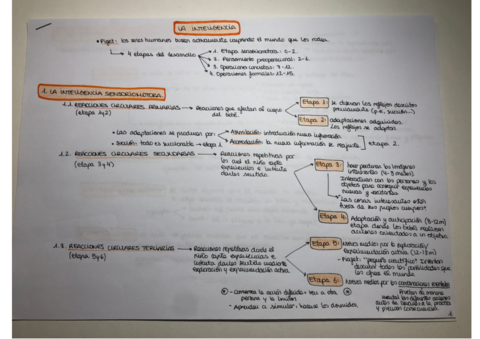 LA INTELIGENCIA
• Piaget: los seres humanos buscan activamente comprender el mundo que les rodea.
4 etapas del desarrollo
1. Etapa sensoriomotora: 0-2.
2. Pensamiento preoperacional: 2-6.
3. Operaciones concretas: 7-12.
4. Operaciones formales: 12-15.
1. LA INTELIGENCIA SENSORIOMOTORA.
1.1. REACCIONES CIRCULARES PRIMARIAS
(etapas 1 y 2)
Reacciones que afectan al cuerpo
del bebé.
Etapa 1:
previamente (p.e. succión...)
Etapa 2:
adaptaciones adquiridas.
Los reflejos se adaptan.
• Las adaptaciones se producen por:
Asimilación: introducción nueva información
Acomodación: la nueva información se reajusta
etapa 2.
• Succión: todo es succionable → etapa 1.
1.2. REACCIONES CIRCULARES SECUNDARIAS
(etapas 3 y 4)
Reacciones repetitivas por
las que el niño capta
experiencias e intenta
darles sentido.
Etapa 3:
interesantes (4-8 meses)
Interactúan con las personas y los
objetos para conseguir experiencias
nuevas y excitantes
Las cosas interesantes están
fuera de sus propios cuerpos
Etapa 4:
Adaptación y anticipación (8-12m)
etapa donde los bebés realizan
acciones orientadas a un objetivo.
1.3. REACCIONES CIRCULARES TERCIARIAS
(etapas 5 y 6)
Reacciones repetitivas donde el
niño capta experiencias e
intenta darles sentido mediante
exploración y experimentación activa.
Etapa 5:
Nuevos medios por la exploración/
experimentación activa (12-18m)
Piaget: "pequeño científico" intentan
descubrir todas las posibilidades que
les ofrece el mundo
Etapa 6:
Nuevos medios por las combinaciones mentales
- Comienza la acción diferida: ves a otra
persona y la imitan
- Aprenden a simular; hacerse los dormidos.
1